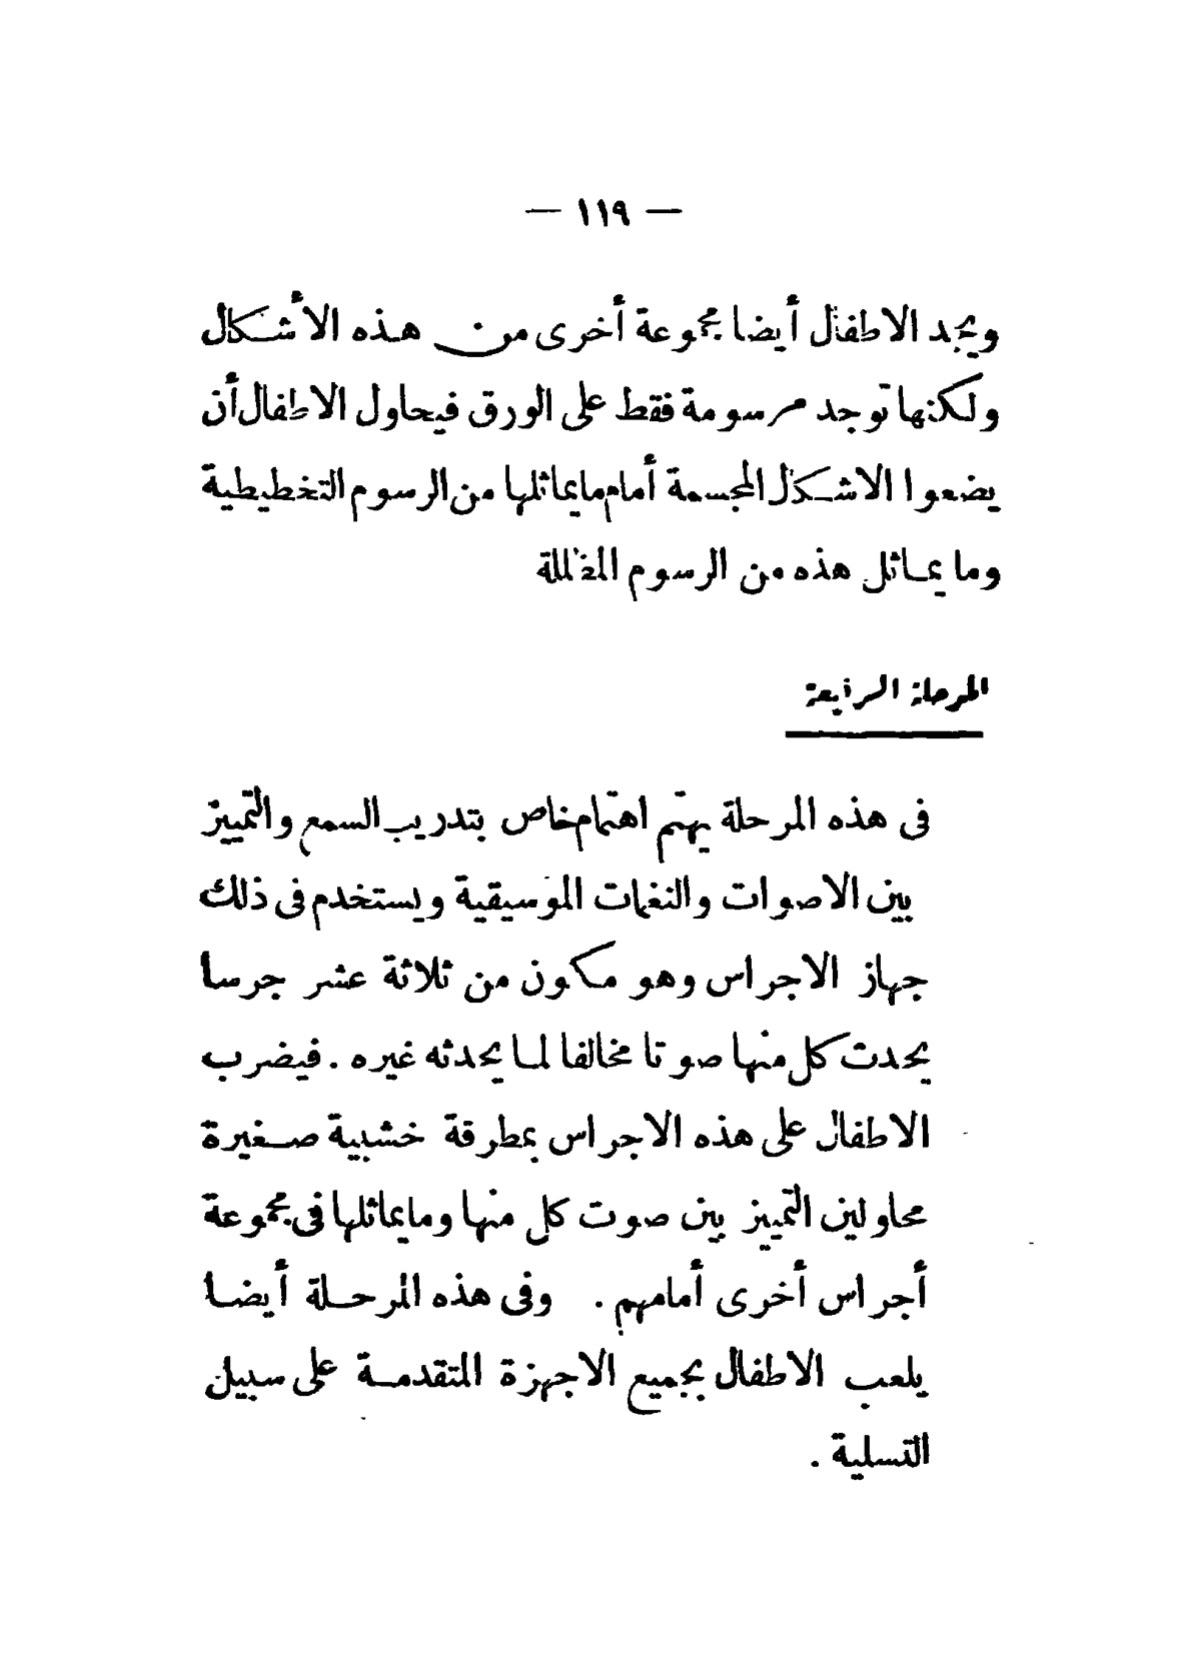 — ١١٩ —
ويجد الاطفال أيضا مجموعة أخرى من هذه الأشكال
ولكنها توجد مرسومة فقط على الورق فيحاول الاطفال أن
يضعوا الاشكال المجسمة أمام ما يماثلها من الرسوم التخطيطية
وما يماثل هذه من الرسوم المظللة
المرحلة الرابعة
فى هذه المرحلة يهتم اهتمام خاص بتدريب السمع والتمييز
بين الاصوات والنغمات الموسيقية ويستخدم فى ذلك
جهاز الاجراس وهو مكون من ثلاثة عشر جرسا
يحدث كل منها صوتا مخالفا لما يحدثه غيره . فيضرب
الاطفال على هذه الاجراس بمطرقة خشبية صغيرة
محاولين التمييز بين صوت كل منها وما يماثلها فى مجموعة
أجراس أخرى أمامهم . وفى هذه المرحلة أيضا
يلعب الاطفال بجميع الاجهزة المتقدمة على سبيل
التسلية .